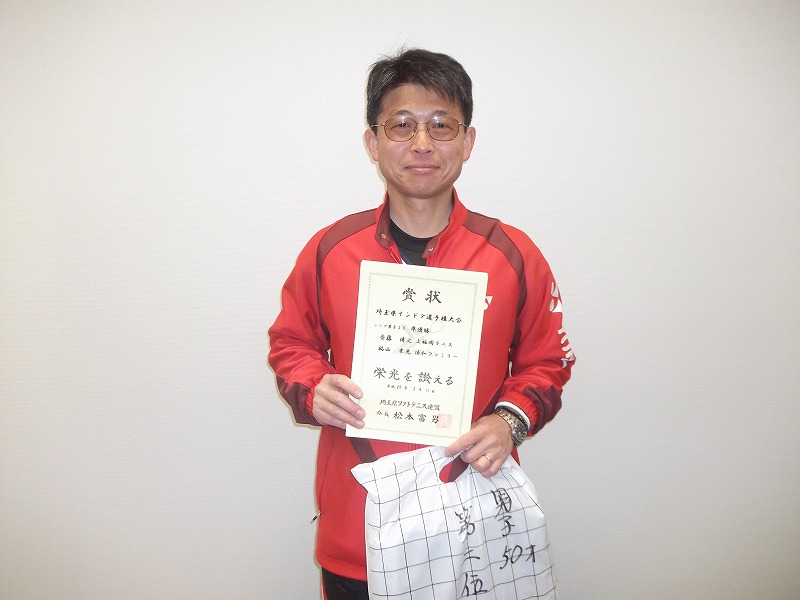 賞状
埼玉県インドア選手権大会
シニア男子50 準優勝
斉藤 博之 上福岡テニス
福山 浦和ファミリー
栄光を讃える
埼玉県ソフトテニス連盟
会長 松本富男
男子50才
第二位